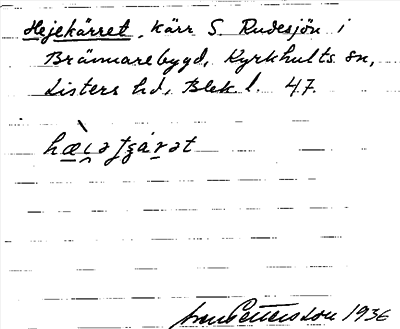 Hejekärret, kärr S. Rudesjön i
Brännarebygd, Kyrkhults sn,
Listers hd, Blek l. 47.
Pettersson 1936